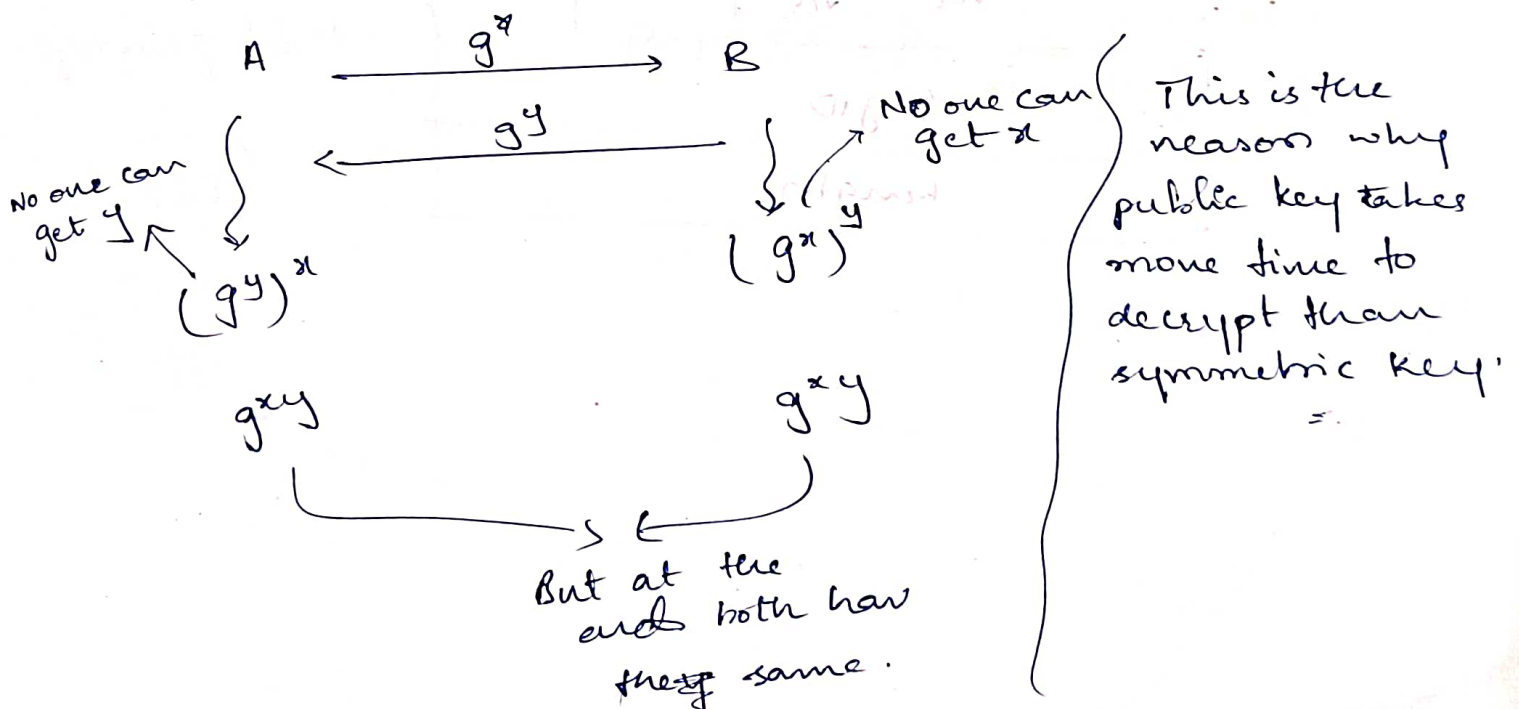 A g^x B
g^y
No one can
get y
(g^y)^x
No one can
get x
(g^x)^y
g^xy g^xy
But at the
end both hav
the same.
This is the
reason why
public key takes
more time to
decrypt than
symmetric key.